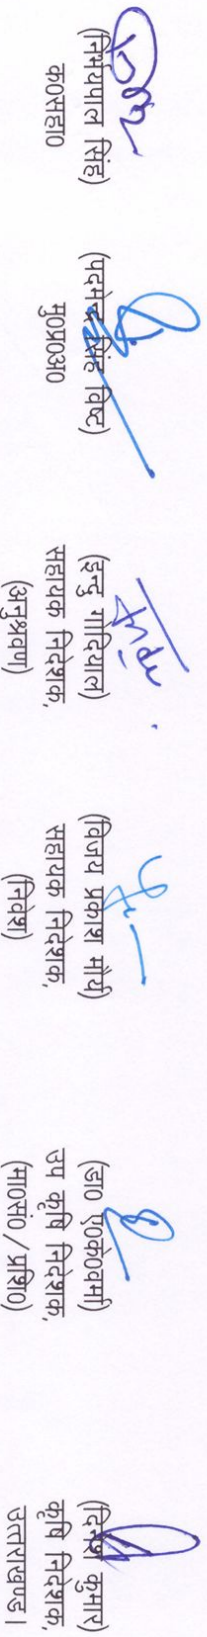 (निर्भयपाल सिंह)
क०सहा०
(पदमेन्द्र सिंह विष्ट)
मु०प्र०अ०
(इन्दु गोदियाल)
सहायक निदेशक,
(अनुश्रवण)
(विजय प्रकाश मौर्य)
सहायक निदेशक,
(निवेश)
(डा० ए०के०वर्मा)
उप कृषि निदेशक,
(मा०सं० / प्रशि०)
(दिनेश कुमार)
कृषि निदेशक,
उत्तराखण्ड।